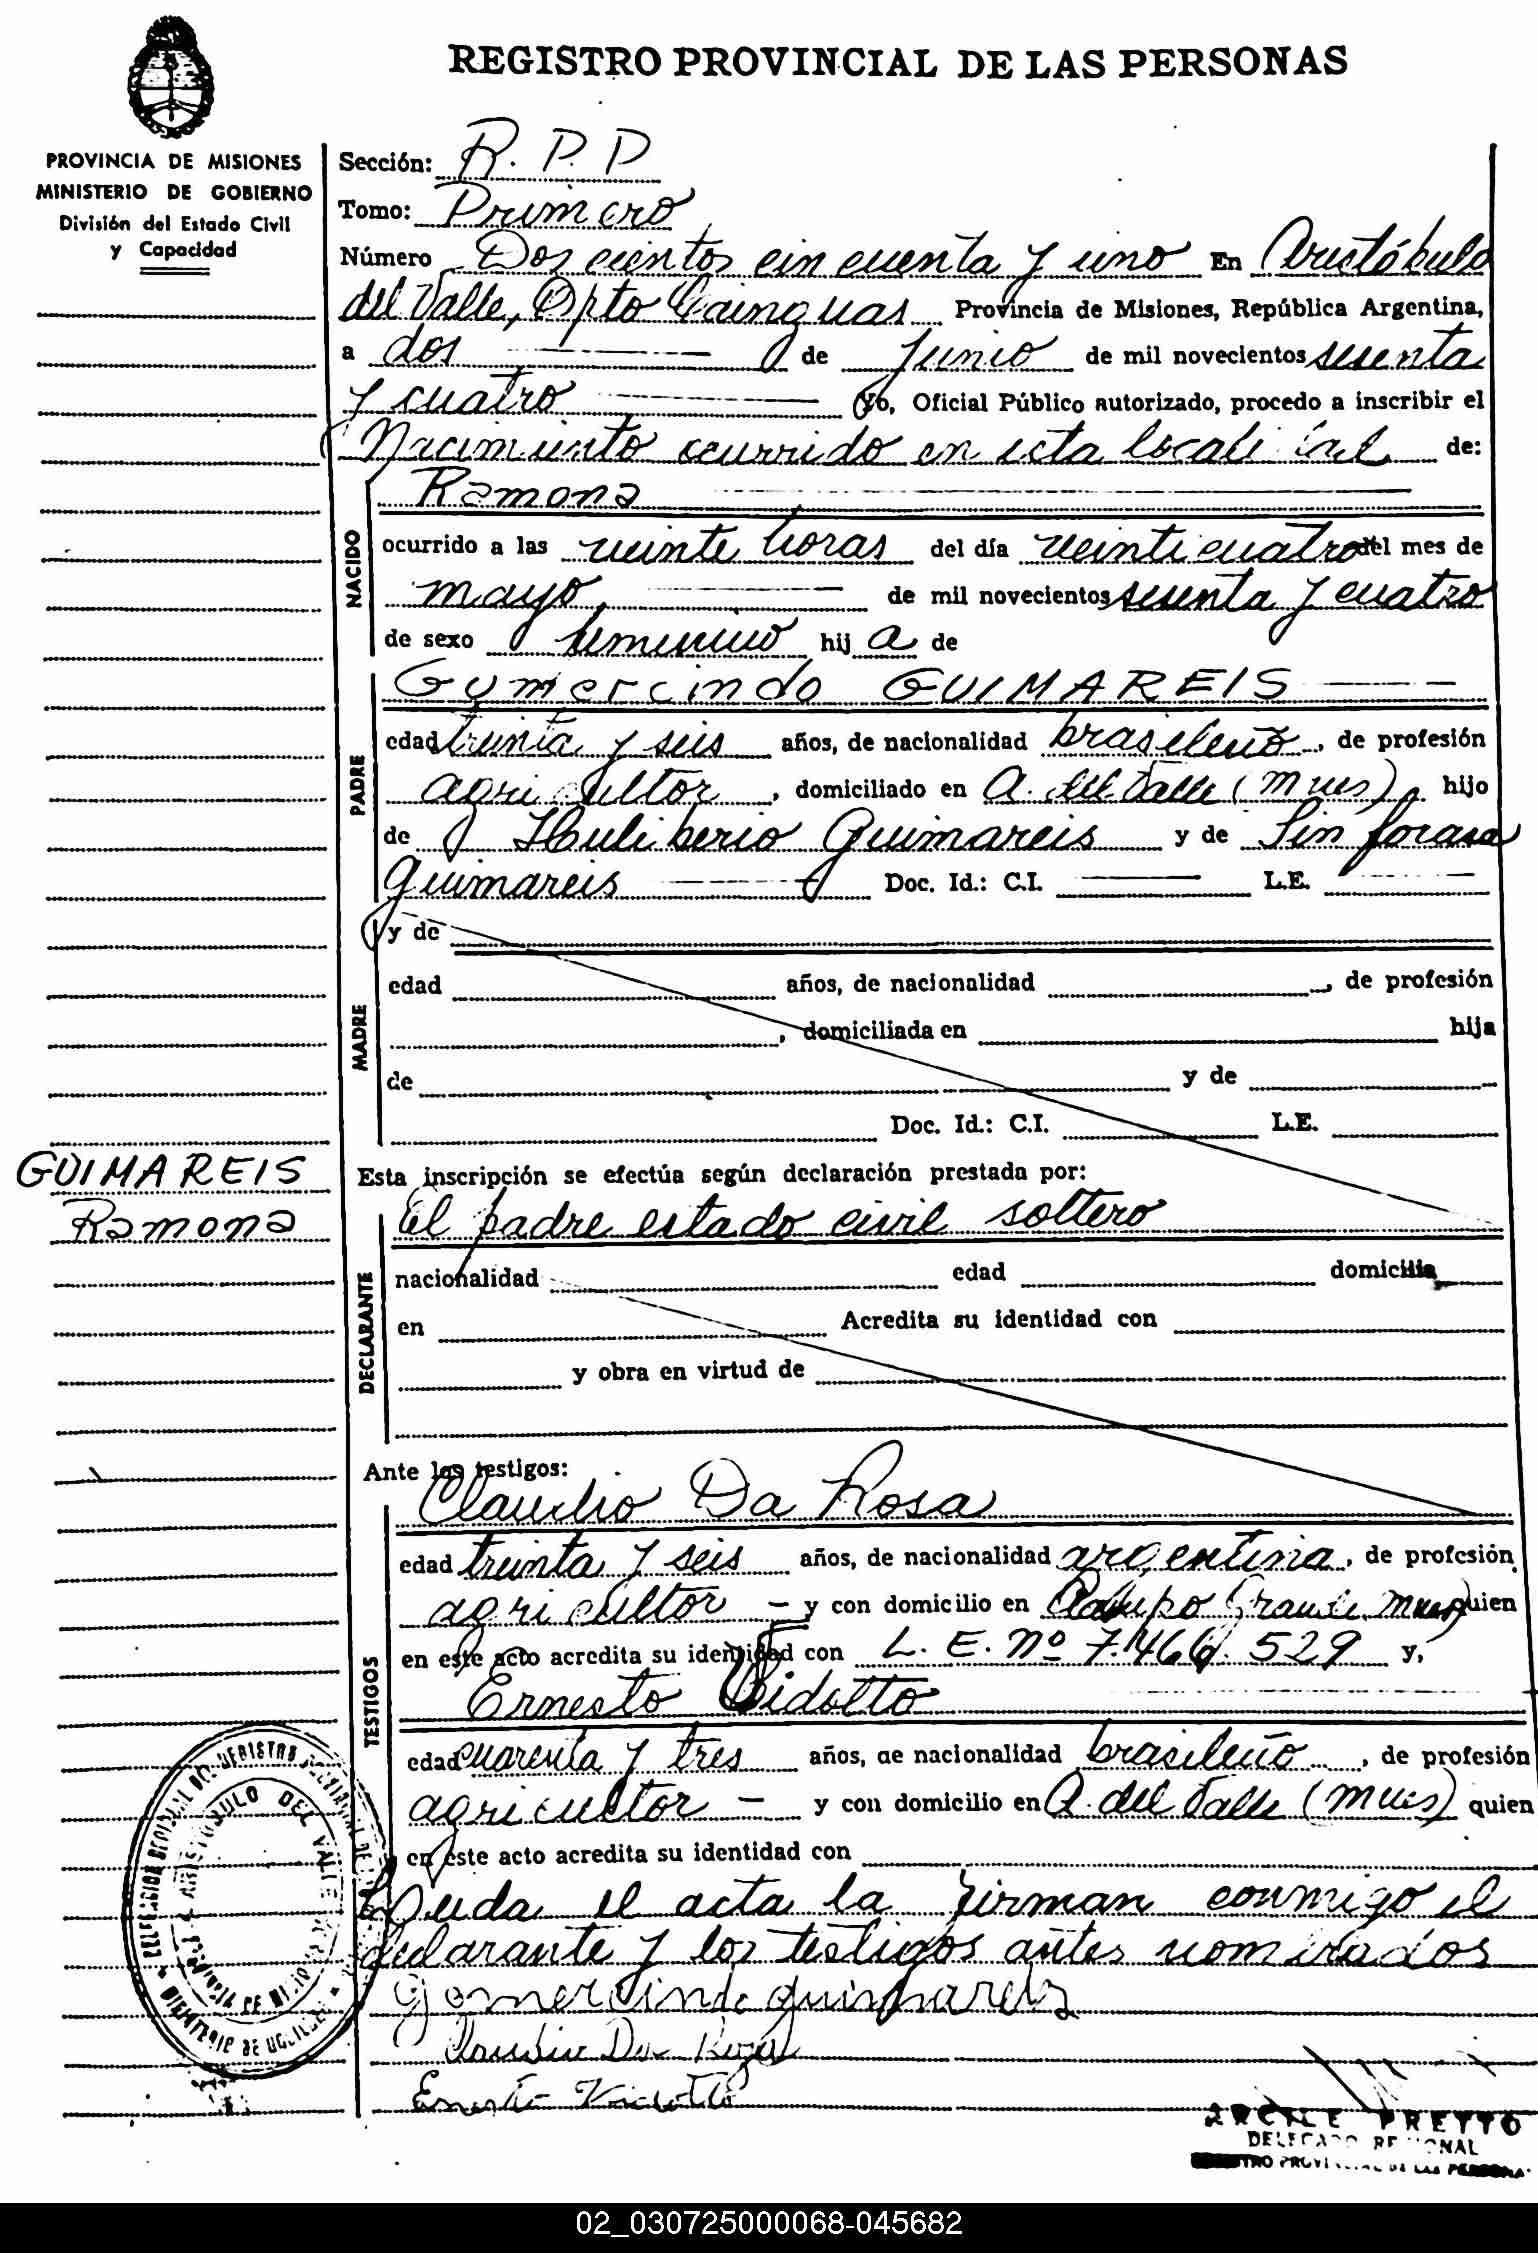 REGISTRO PROVINCIAL DE LAS PERSONAS
PROVINCIA DE MISIONES
MINISTERIO DE GOBIERNO
División del Estado Civil
y Capacidad
Sección: R. P. P
Tomo: Primero
Número Doscientos cincuenta y uno En Aristóbulo
del Valle, Dpto Cainguas Provincia de Misiones, República Argentina,
a dos de Junio de mil novecientos sesenta
y cuatro Yo, Oficial Público autorizado, procedo a inscribir el
Nacimiento ocurrido en esta localidad de:
NACIDO
Ramona
ocurrido a las veinte horas del día veinticuatro del mes de
mayo de mil novecientos sesenta y cuatro
de sexo femenino hij a de
PADRE
Gumercindo GUIMAREIS
edad treinta y seis años, de nacionalidad brasileño, de profesión
agricultor, domiciliado en A. del Valle (Mnes), hijo
de Huliberio Guimareis y de Sinforosa
Guimareis Doc. Id.: C.I. L.E.
MADRE
y de
edad años, de nacionalidad , de profesión
, domiciliada en hija
de y de
Doc. Id.: C.I. L.E.
GUIMAREIS
Ramona
Esta inscripción se efectúa según declaración prestada por:
DECLARANTE
El padre estado civil soltero
nacionalidad edad domicilia
en Acredita su identidad con
y obra en virtud de
Ante los testigos:
TESTIGOS
Claudio Da Rosa
edad treinta y seis años, de nacionalidad argentina, de profesión
agricultor - y con domicilio en Grande, Mnes) quien
en este acto acredita su identidad con L. E. Nº 529 y,
Ernesto Vidotto
edad cuarenta y tres años, de nacionalidad brasileño, de profesión
agricultor - y con domicilio en A. del Valle (Mnes) quien
en este acto acredita su identidad con
Leida el acta la firman conmigo el
declarante y los testigos antes nombrados
Gomercindo guimareis
Claudio Da Rosa
Ernesto Vidotto
DELEGACION REGIONAL DEL REGISTRO PROVINCIAL DE LAS
ARISTOBULO DEL VALLE
PROVINCIA DE MISIONES
MINISTERIO DE GOBIERNO
PRETTO
DELEGADO REGIONAL
REGISTRO PROVINCIAL DE LAS PERSONAS
02_030725000068-045682